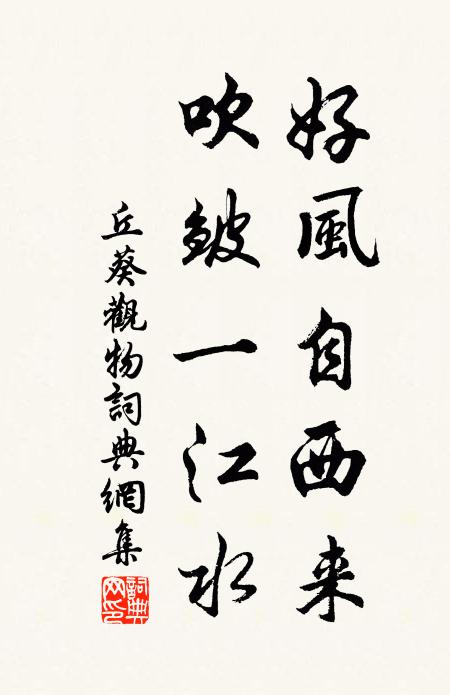 好風自西来
吹皺一江水
丘葵觀物詞典網集
詞典網印